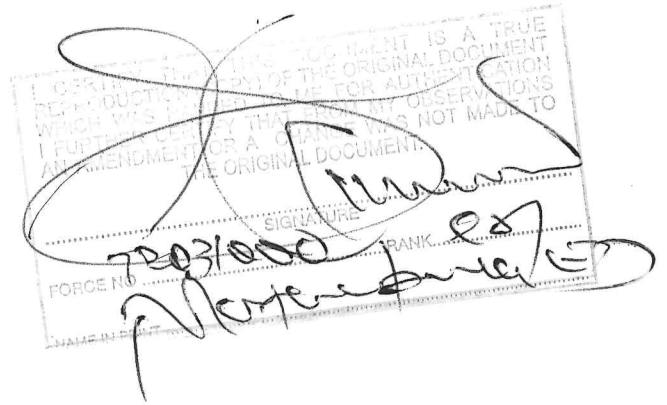 I CERTIFY THAT THIS DOCUMENT IS A TRUE
REPRODUCTION (COPY) OF THE ORIGINAL DOCUMENT
WHICH WAS HANDED TO ME FOR AUTHENTICATION
I FURTHER CERTIFY THAT FROM MY OBSERVATIONS
AN AMENDMENT OR A CHANGE WAS NOT MADE TO
THE ORIGINAL DOCUMENT
SIGNATURE
FORCE NO RANK
NAME IN PRINT